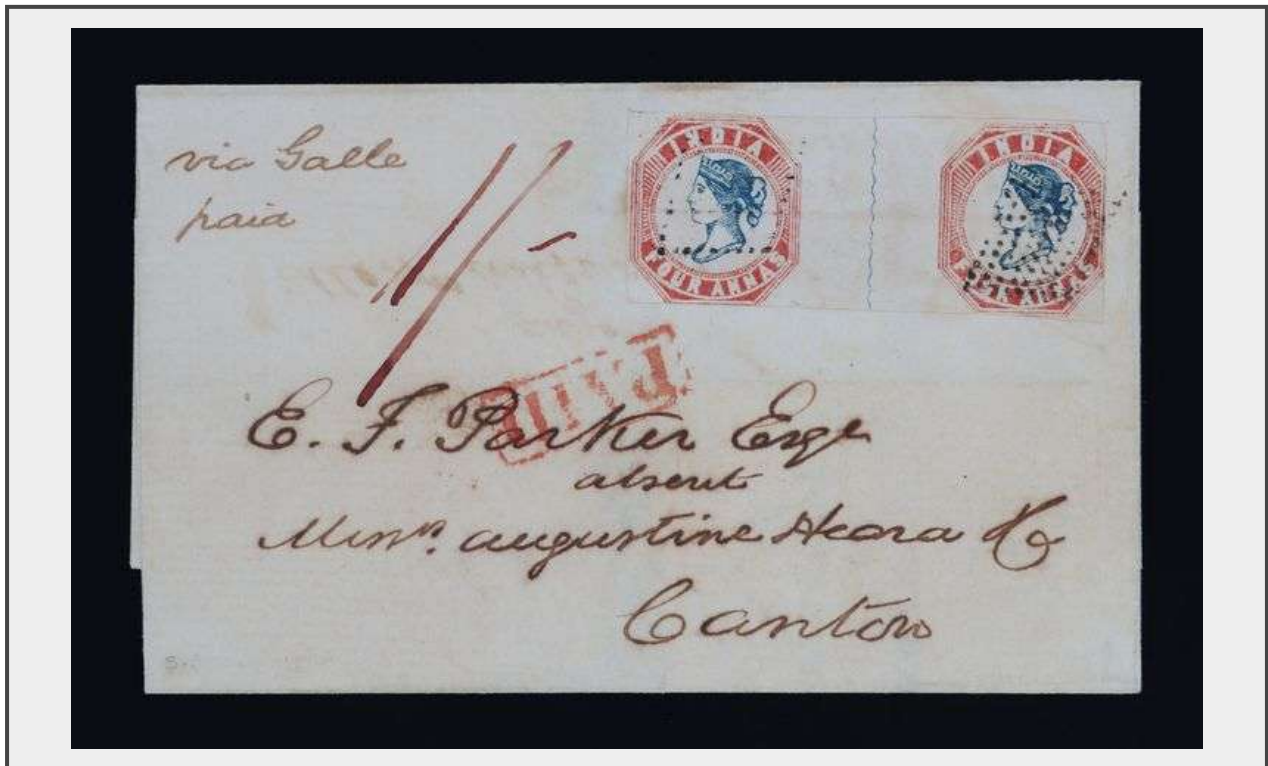 via Galle
paid
INDIA
FOUR ANNAS
INDIA
FOUR ANNAS
PAID
E. F. Parker Esqr
absent
Messrs. Augustine Heard & Co
Canton